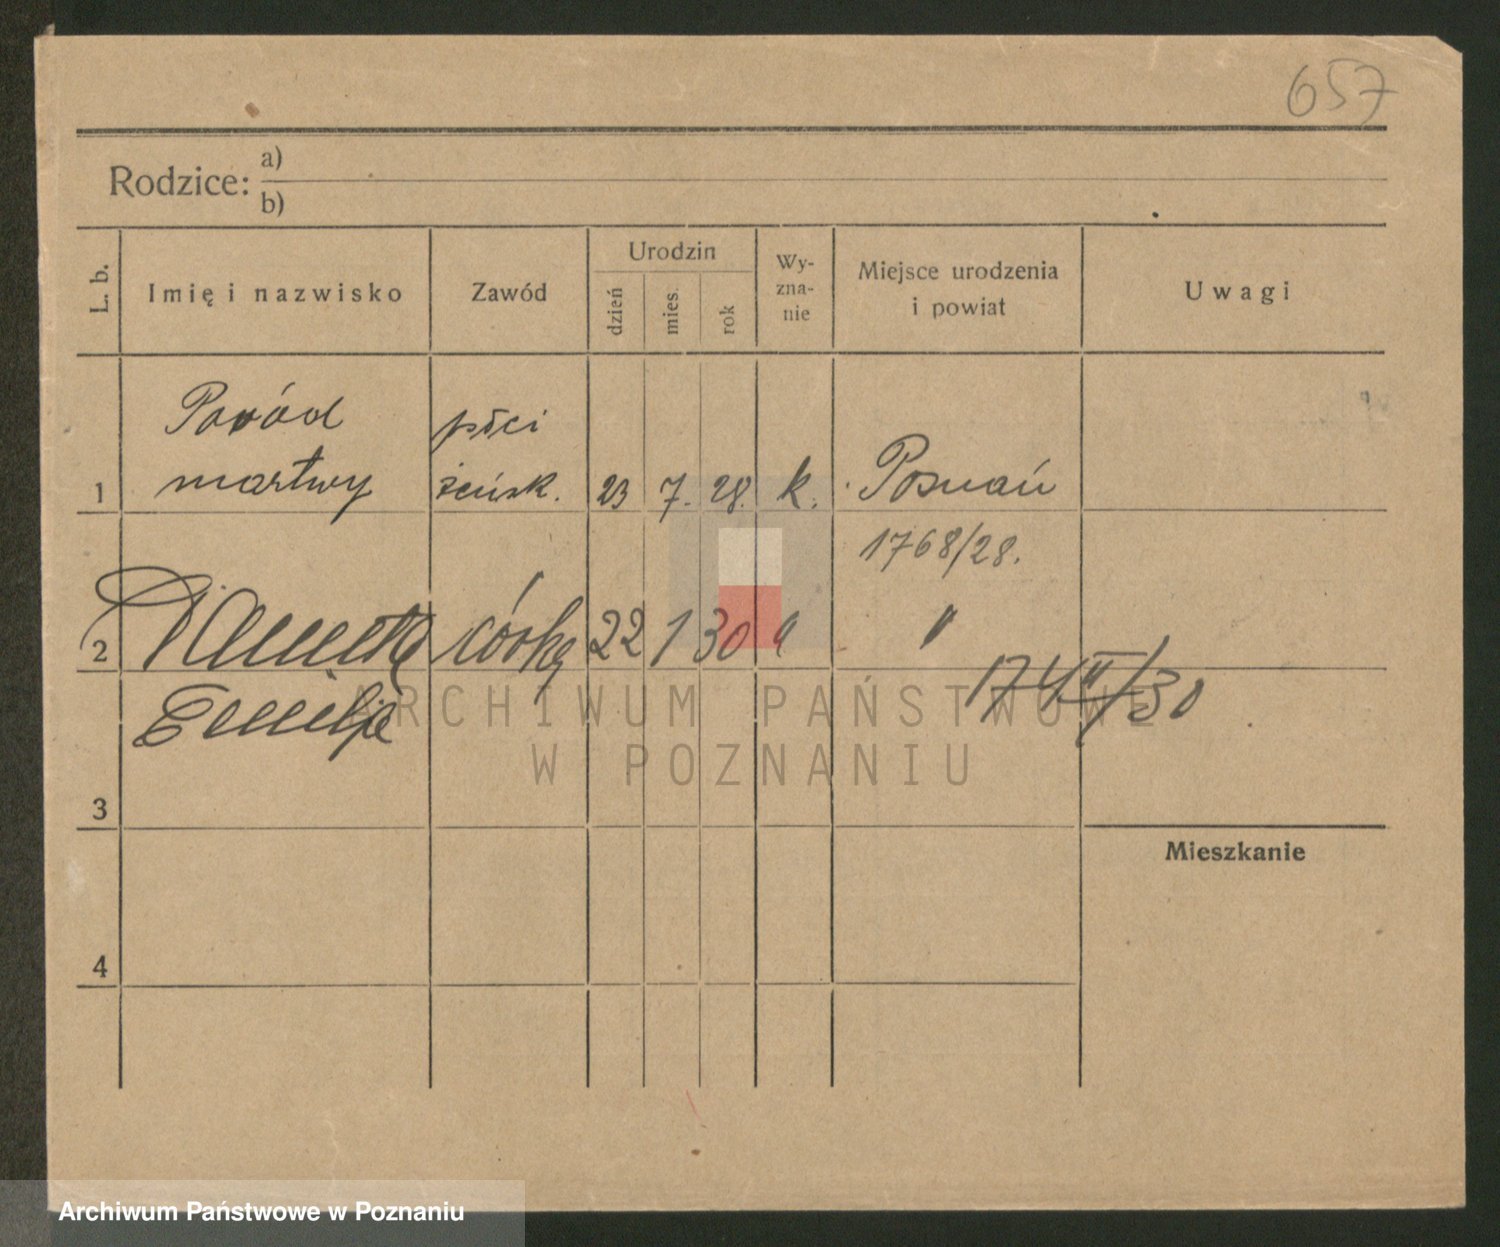 657
Rodzice: a)
b)
L. b. Imię i nazwisko Zawód Urodzin dzień mies. rok Wy-zna-nie Miejsce urodzenia i powiat Uwagi
Poród płci
1 martwy żeńsk. 23 7. 28. k. Poznań
1768/28.
2 Danuta córka 22 1 30 " "
174 II/30
Emilja
3
Mieszkanie
4
ARCHIWUM PAŃSTWOWE
W POZNANIU
Archiwum Państwowe w Poznaniu